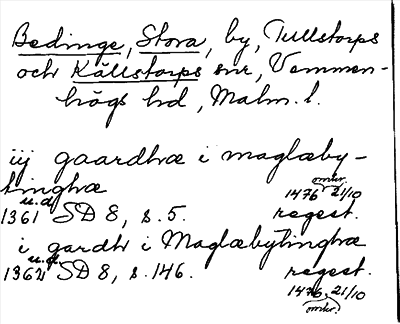 Bedinge, Stora, by, Tullstorps
och Källstorps snr, Vemmen-
högs hd, Malm. l.
iij gaardhæ i maglæby-
tinghæ
omkr.
1476 21/10
u.d.
1361 SD 8, s. 5. regest.
i gardh i Maglæbytinghæ
u.d.
1362 SD 8, s. 146. regest.
1476 21/10
omkr.